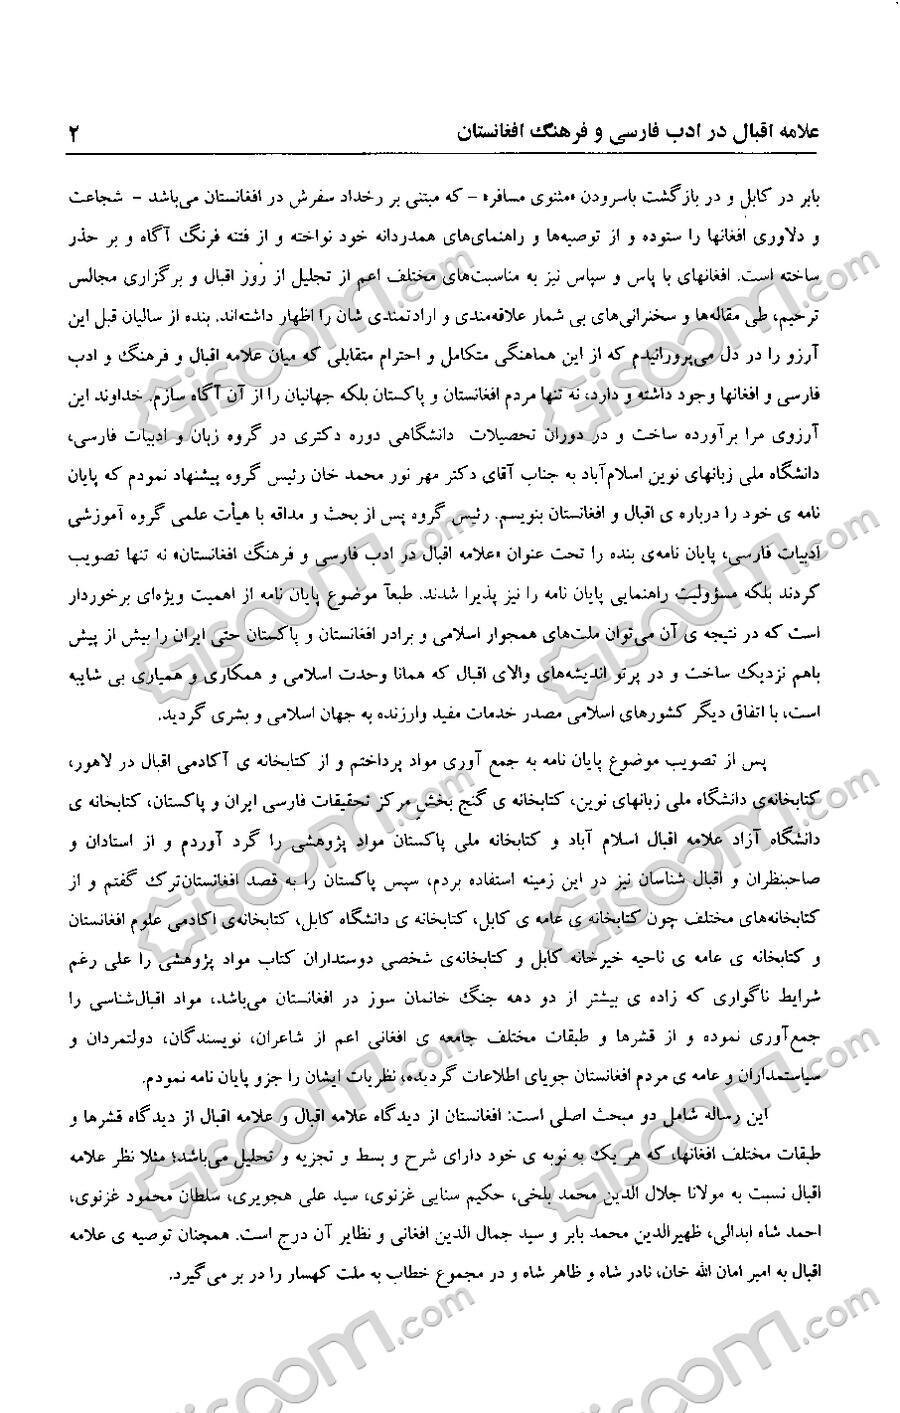 علامه اقبال در ادب فارسی و فرهنگ افغانستان ۲
بابر در کابل و در بازگشت باسرودن «مثنوی مسافر» – که مبتنی بر رخداد سفرش در افغانستان می‌باشد – شجاعت
و دلاوری افغانها را ستوده و از توصیه‌ها و راهنمای‌های همدردانه خود نواخته و از فتنه فرنگ آگاه و بر حذر
ساخته است. افغانهای با پاس و سپاس نیز به مناسبت‌های مختلف اعم از تجلیل از روز اقبال و برگزاری مجالس
ترحیم، طی مقاله‌ها و سخنرانی‌های بی شمار علاقه‌مندی و ارادتمندی شان را اظهار داشته‌اند. بنده از سالیان قبل این
آرزو را در دل می‌پرورانیدم که از این هماهنگی متکامل و احترام متقابلی که میان علامه اقبال و فرهنگ و ادب
فارسی و افغانها وجود داشته و دارد، نه تنها مردم افغانستان و پاکستان بلکه جهانیان را از آن آگاه سازم. خداوند این
آرزوی مرا برآورده ساخت و در دوران تحصیلات دانشگاهی دوره دکتری در گروه زبان و ادبیات فارسی،
دانشگاه ملی زبانهای نوین اسلام‌آباد به جناب آقای دکتر مهر نور محمد خان رئیس گروه پیشنهاد نمودم که پایان
نامه ی خود را درباره ی اقبال و افغانستان بنویسم. رئیس گروه پس از بحث و مداقه با هیأت علمی گروه آموزشی
ادبیات فارسی، پایان نامه‌ی بنده را تحت عنوان «علامه اقبال در ادب فارسی و فرهنگ افغانستان» نه تنها تصویب
کردند بلکه مسؤولیت راهنمایی پایان نامه را نیز پذیرا شدند. طبعاً موضوع پایان نامه از اهمیت ویژه‌ای برخوردار
است که در نتیجه ی آن می‌توان ملت‌های همجوار اسلامی و برادر افغانستان و پاکستان حتی ایران را بیش از پیش
باهم نزدیک ساخت و در پرتو اندیشه‌های والای اقبال که همانا وحدت اسلامی و همکاری و همیاری بی شایبه
است، با اتفاق دیگر کشورهای اسلامی مصدر خدمات مفید وارزنده به جهان اسلامی و بشری گردید.
پس از تصویب موضوع پایان نامه به جمع آوری مواد پرداختم و از کتابخانه ی آکادمی اقبال در لاهور،
کتابخانه‌ی دانشگاه ملی زبانهای نوین، کتابخانه ی گنج بخش مرکز تحقیقات فارسی ایران و پاکستان، کتابخانه ی
دانشگاه آزاد علامه اقبال اسلام آباد و کتابخانه ملی پاکستان مواد پژوهشی را گرد آوردم و از استادان و
صاحبنظران و اقبال شناسان نیز در این زمینه استفاده بردم، سپس پاکستان را به قصد افغانستان‌ترک گفتم و از
کتابخانه‌های مختلف چون کتابخانه ی عامه ی کابل، کتابخانه ی دانشگاه کابل، کتابخانه‌ی اکادمی علوم افغانستان
و کتابخانه ی عامه ی ناحیه خیرخانه کابل و کتابخانه‌ی شخصی دوستداران کتاب مواد پژوهشی را علی رغم
شرایط ناگواری که زاده ی بیشتر از دو دهه جنگ خانمان سوز در افغانستان می‌باشد، مواد اقبال‌شناسی را
جمع‌آوری نموده و از قشرها و طبقات مختلف جامعه ی افغانی اعم از شاعران، نویسندگان، دولتمردان و
سیاستمداران و عامه ی مردم افغانستان جویای اطلاعات گردیده، نظریات ایشان را جزو پایان نامه نمودم.
این رساله شامل دو مبحث اصلی است: افغانستان از دیدگاه علامه اقبال و علامه اقبال از دیدگاه قشرها و
طبقات مختلف افغانها، که هر یک به نوبه ی خود دارای شرح و بسط و تجزیه و تحلیل می‌باشد؛ مثلا نظر علامه
اقبال نسبت به مولانا جلال الدین محمد بلخی، حکیم سنایی غزنوی، سید علی هجویری، سلطان محمود غزنوی،
احمد شاه ابدالی، ظهیرالدین محمد بابر و سید جمال الدین افغانی و نظایر آن درج است. همچنان توصیه ی علامه
اقبال به امیر امان الله خان، نادر شاه و ظاهر شاه و در مجموع خطاب به ملت کهسار را در بر می‌گیرد.
Giscoom.com
Giscoom.com
Giscoom.com
Giscoom.com
Giscoom.com
Giscoom.com
Giscoom.com
Giscoom.com
Giscoom.com
Giscoom.com